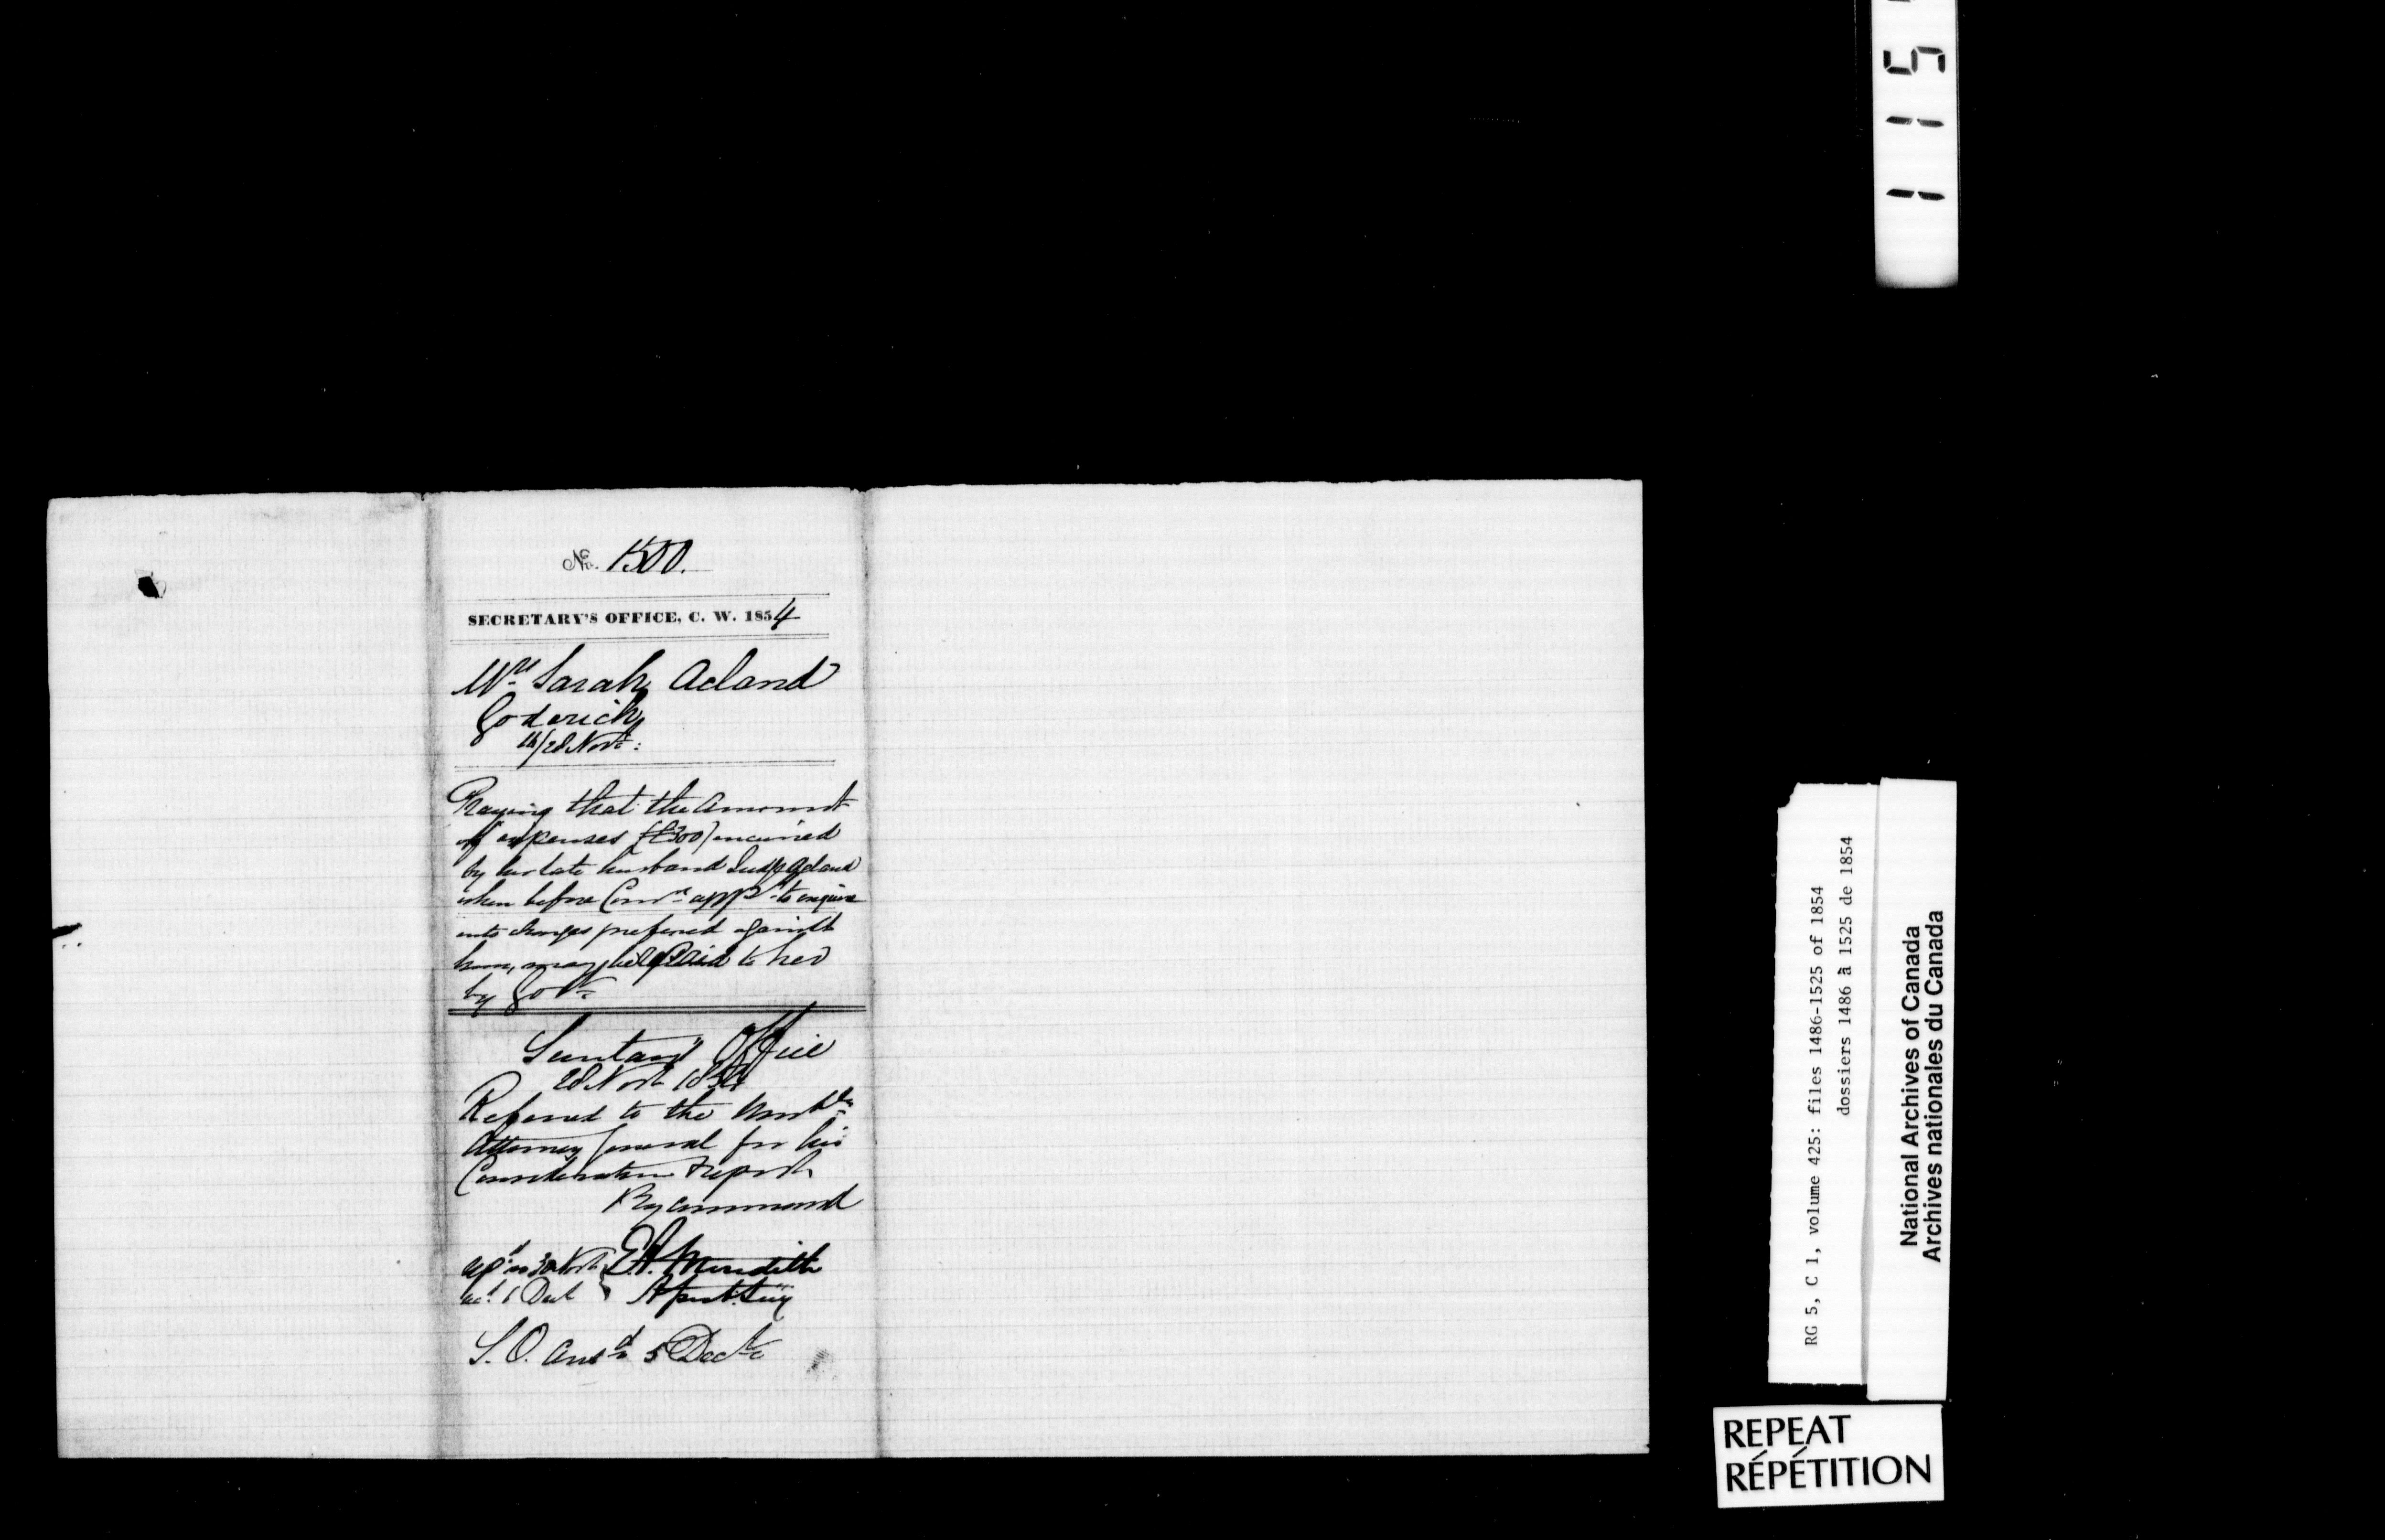 No. 1500.
SECRETARY'S OFFICE, C. W. 1854
Mrs Sarah Acland
Goderich
16/28 Novr:
Praying that the Amount
of expenses (£300) incurred
by her late husband Judge Acland
when before Comrs appd to enquire
into charges preferred against
him, may be repaid to her
by Govt
Secretary's Office
28 Novr 1854
Referred to the Honble
Attorney General for his
Consideration & report
By command
E.A. Meredith
Asst. Secy
30 Novr
Dec
S. O. Ansd 5 Decr
115
RG 5, C 1, volume 425: files 1486-1525 of 1854
dossiers 1486 à 1525 de 1854
National Archives of Canada
Archives nationales du Canada
REPEAT
RÉPÉTITION